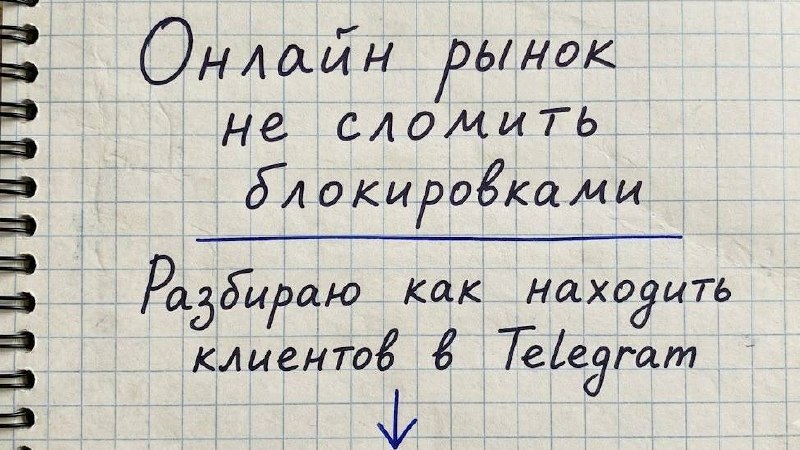 Онлайн рынок
не сломить
блокировками
Разбираю как находить
клиентов в Telegram